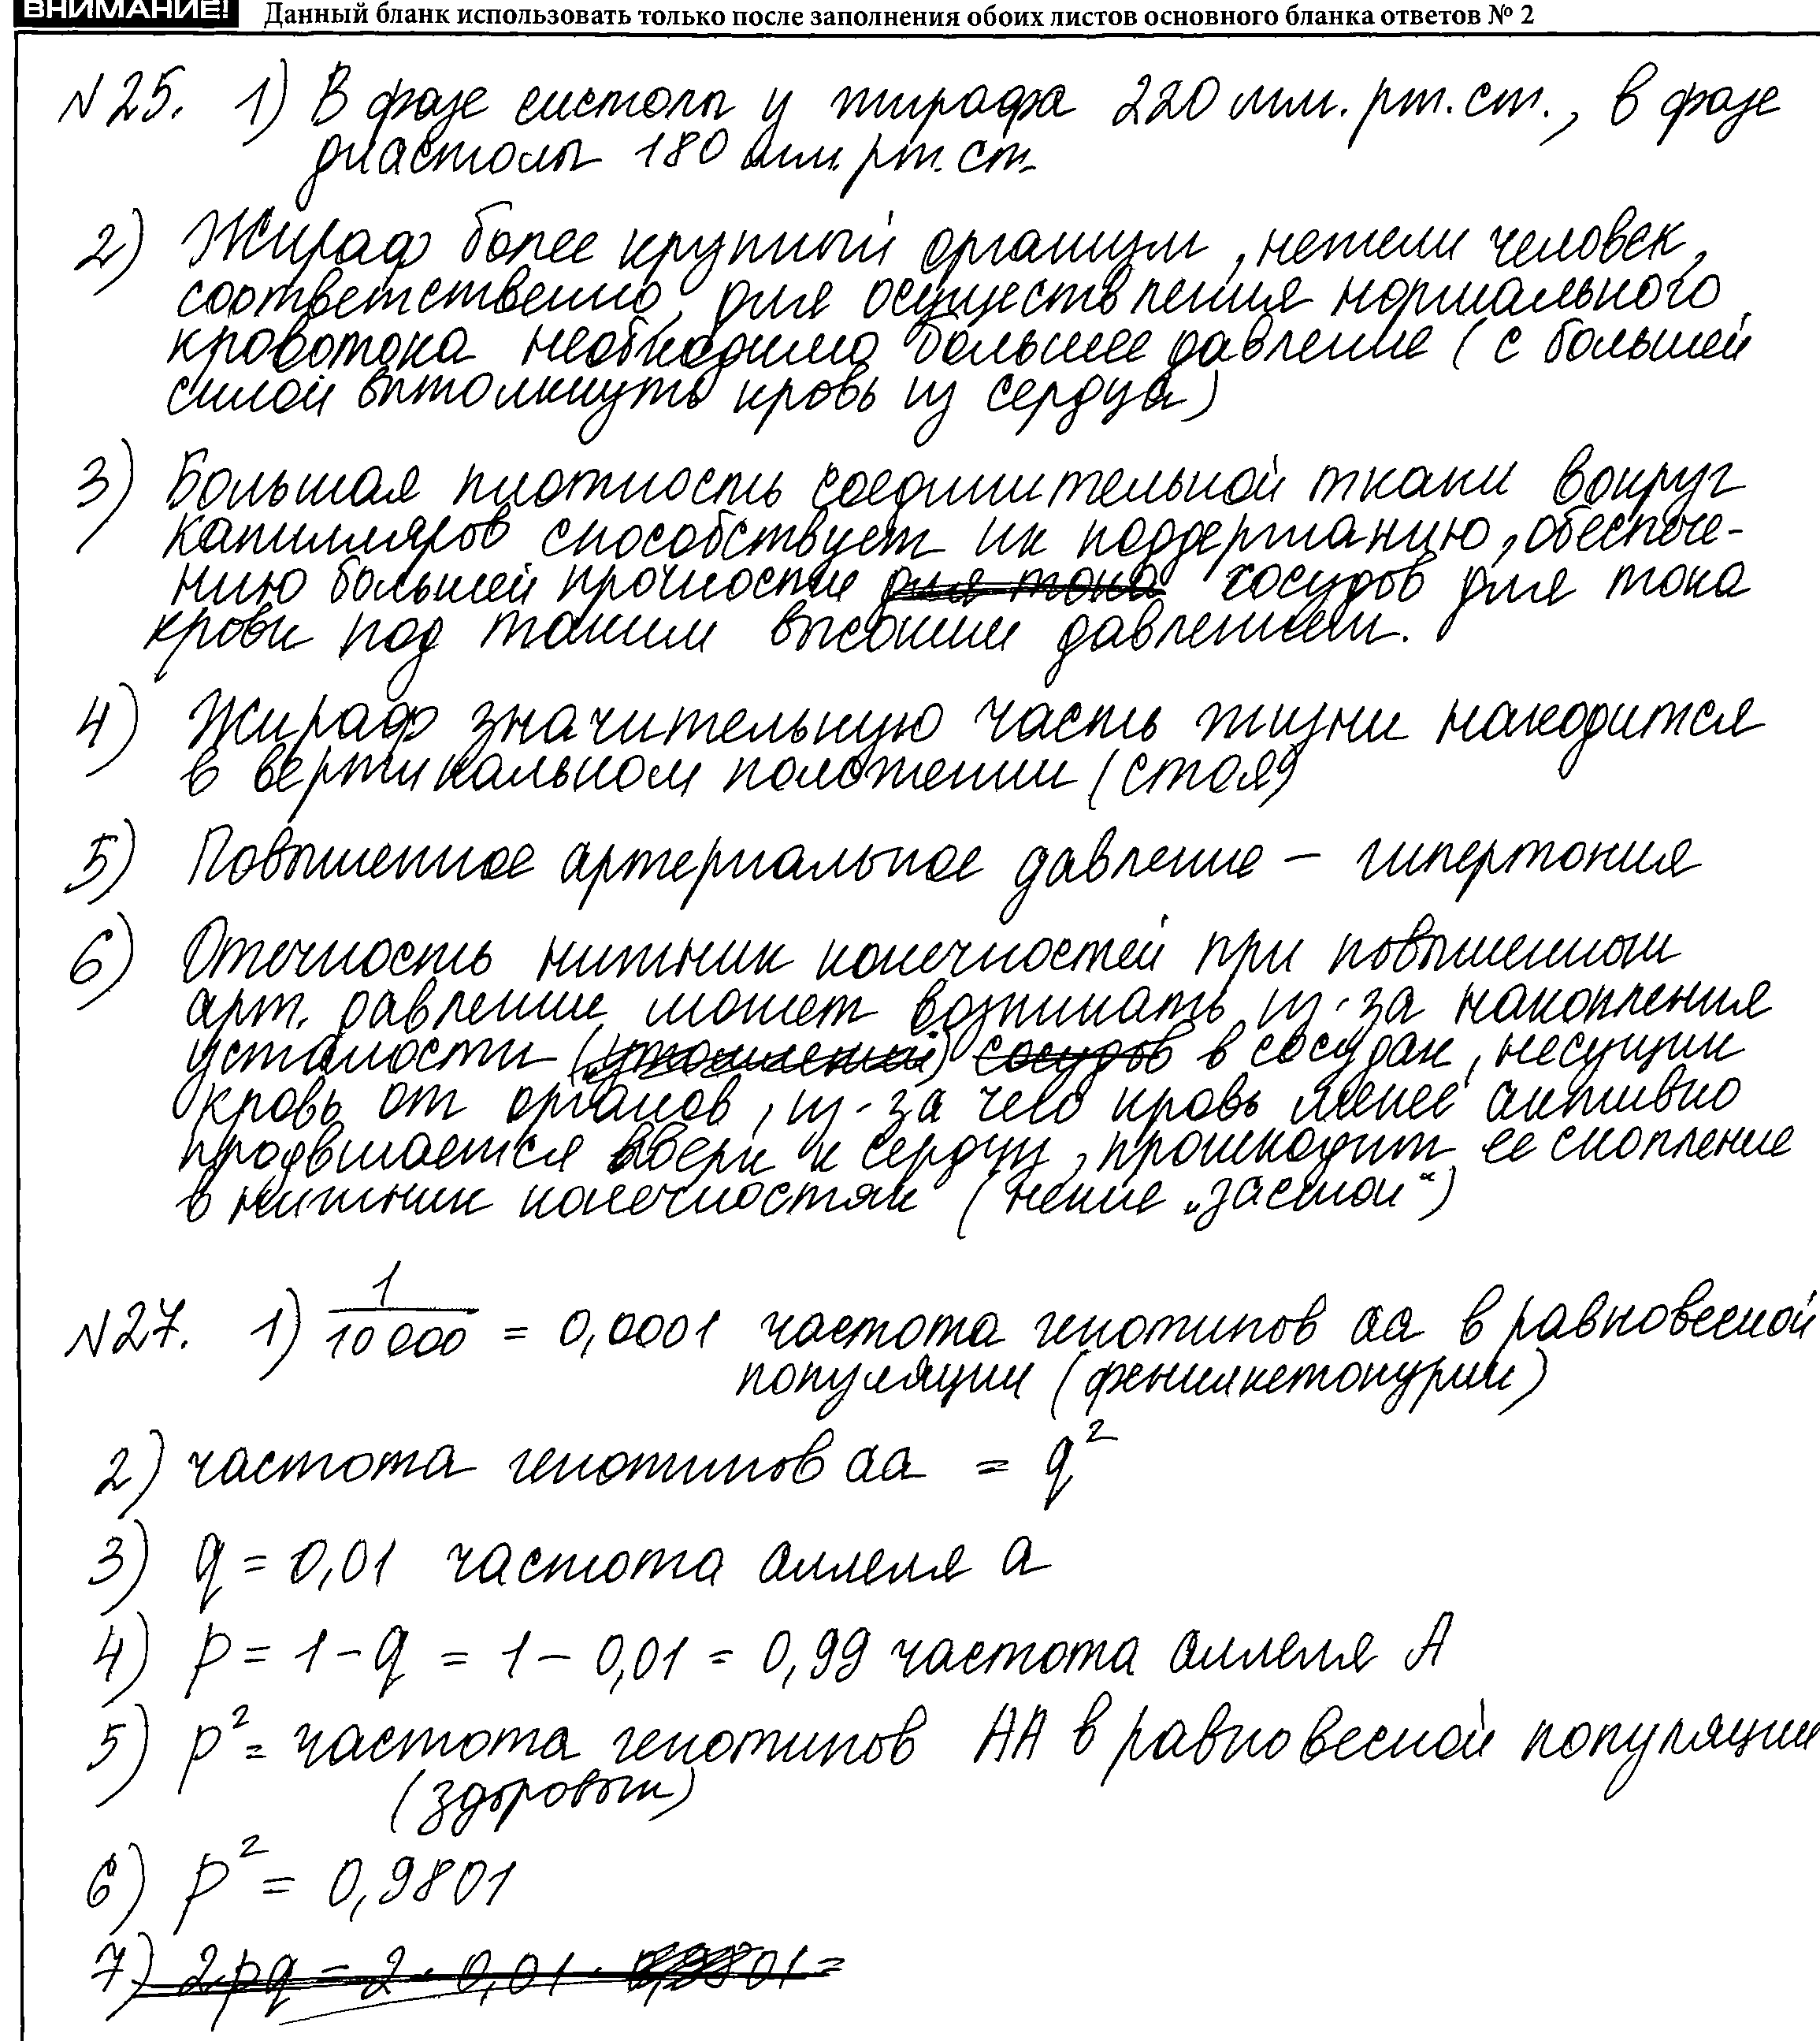 ВНИМАНИЕ! Данный бланк использовать только после заполнения обоих листов основного бланка ответов № 2
N25. 1) В фазе систолы у жирафа 220 мм. рт. ст., в фазе
диастолы 180 мм. рт. ст.
2) Жираф более крупный организм, нежели человек,
соответственно, для осуществления нормального
кровотока необходимо большее давление (с большей
силой вытолкнуть кровь из сердца)
3) Большая плотность соединительной ткани вокруг
капилляров способствует их поддержанию, обеспече-
нию большей прочности для тока сосудов для тока
крови под таким высоким давлением.
4) Жираф значительную часть жизни находится
в вертикальном положении (стоя)
5) Повышенное артериальное давление – гипертония
6) Отечность нижних конечностей при повышенном
арт. давлении может возникать из-за накопления
усталости (утомлений) сосудов в сосудах, несущих
кровь от органов, из-за чего кровь менее активно
продвигается вверх к сердцу, происходит ее скопление
в нижних конечностях (некие „застои“)
N27. 1) 1/10 000 = 0,0001 частота генотипов аа в равновесной
популяции (фенилкетонурии)
2) частота генотипов аа = q²
3) q = 0,01 частота аллеля а
4) p = 1 – q = 1 – 0,01 = 0,99 частота аллеля А
5) p² = частота генотипов АА в равновесной популяции
(здоровых)
6) p² = 0,9801
7) 2pq = 2 · 0,01 · 0,9801 =